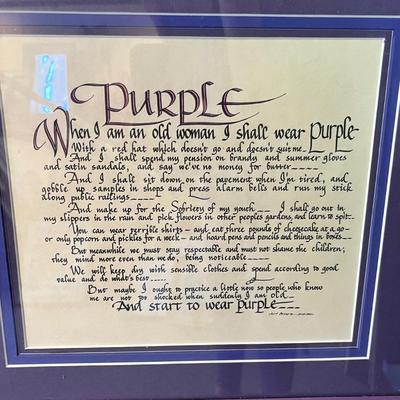 PURPLE
When I am an old woman I shall wear Purple
With a red hat which doesn't go and doesn't suit me
And I shall spend my pension on brandy and summer gloves
and satin sandals, and say we've no money for butter
And I shall sit down on the pavement when I'm tired, and
gobble up samples in shops and press alarm bells and run my stick
along public railings
And make up for the Sobriety of my youth — I shall go out in
my slippers in the rain and pick flowers in other peoples gardens, and learn to spit.
You can wear terrible shirts — and eat three pounds of cheesecake at a go —
or only popcorn and pickles for a week — and, hoard pens and pencils and things in boxes
But meanwhile we must stay respectable and must not shame the children;
they mind more even than we do, being noticeable
We will keep dry with sensible clothes and spend according to good
value and do what's best
But maybe I ought to practice a little now so people who know
me are not too shocked when suddenly I am old
And start to wear Purple